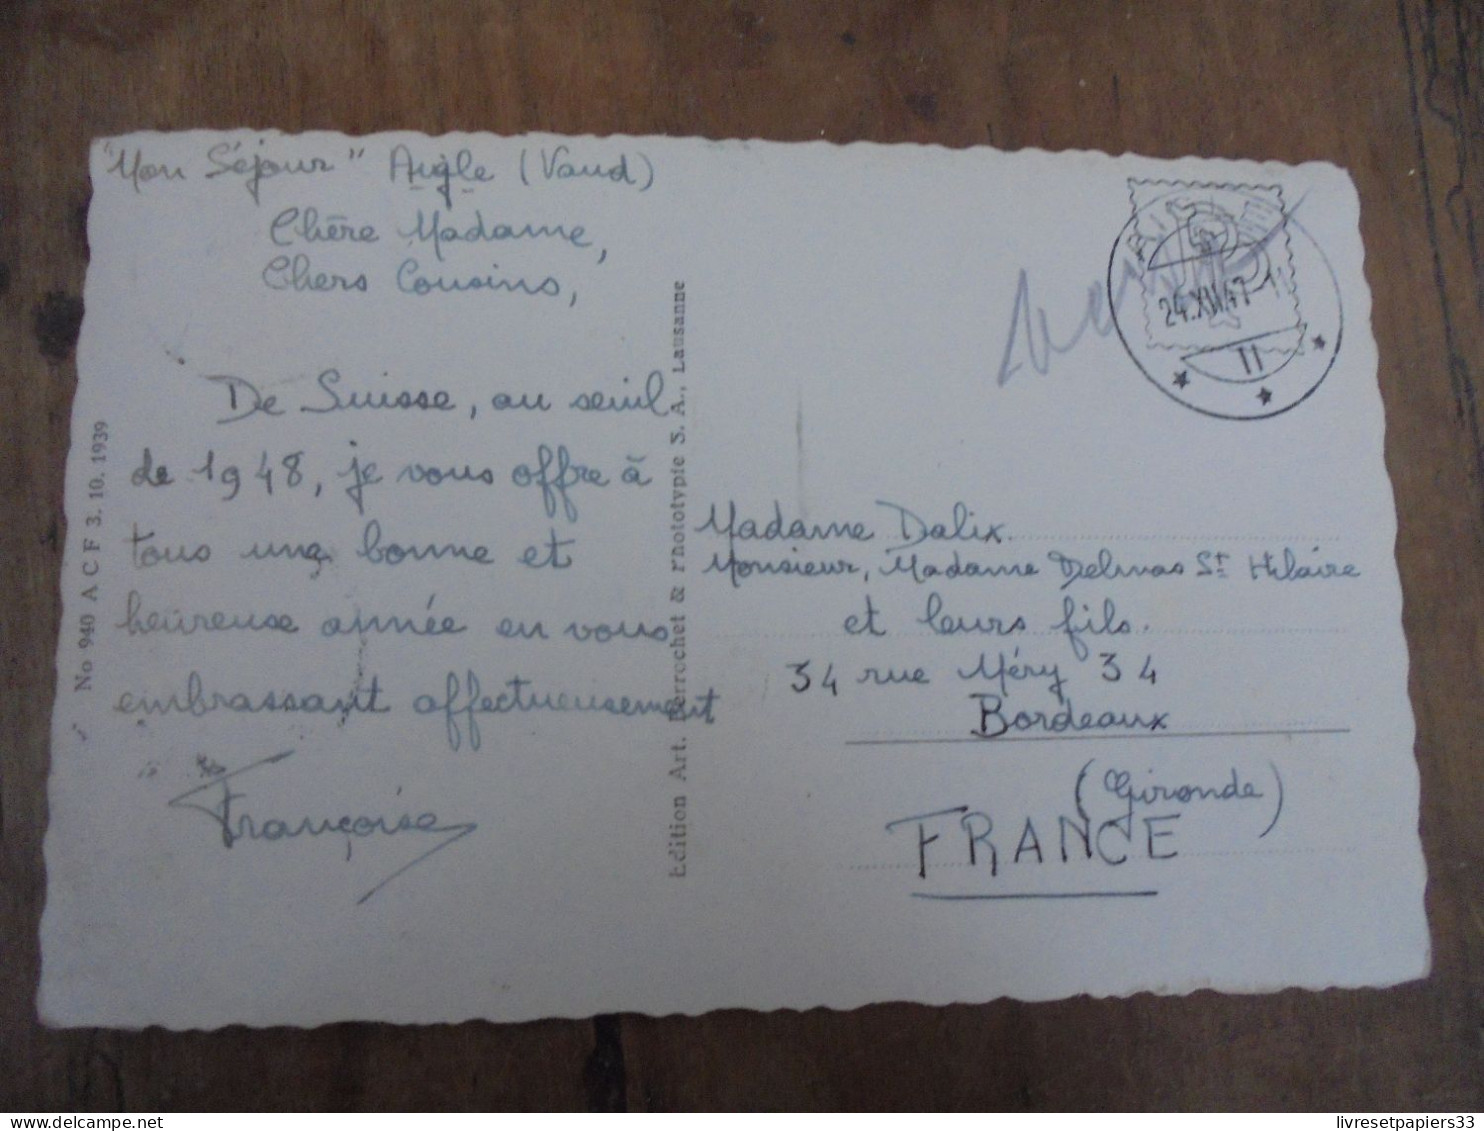 "Mon Séjour" Aigle (Vaud)
Chère Madame,
Chers Cousins,
De Suisse, au seuil
de 1948, je vous offre à
tous une bonne et
heureuse année en vous
embrassant affectueusement
Françoise
No 940 A C F 3. 10. 1939
Edition Art. Perrochet & Phototypie S. A., Lausanne
24.XII.47
11
Madame Dalix.
Monsieur, Madame Delmas St Hilaire
et leurs fils.
34 rue Méry 34
Bordeaux
(Gironde)
FRANCE
delcampe.net
livresetpapiers33